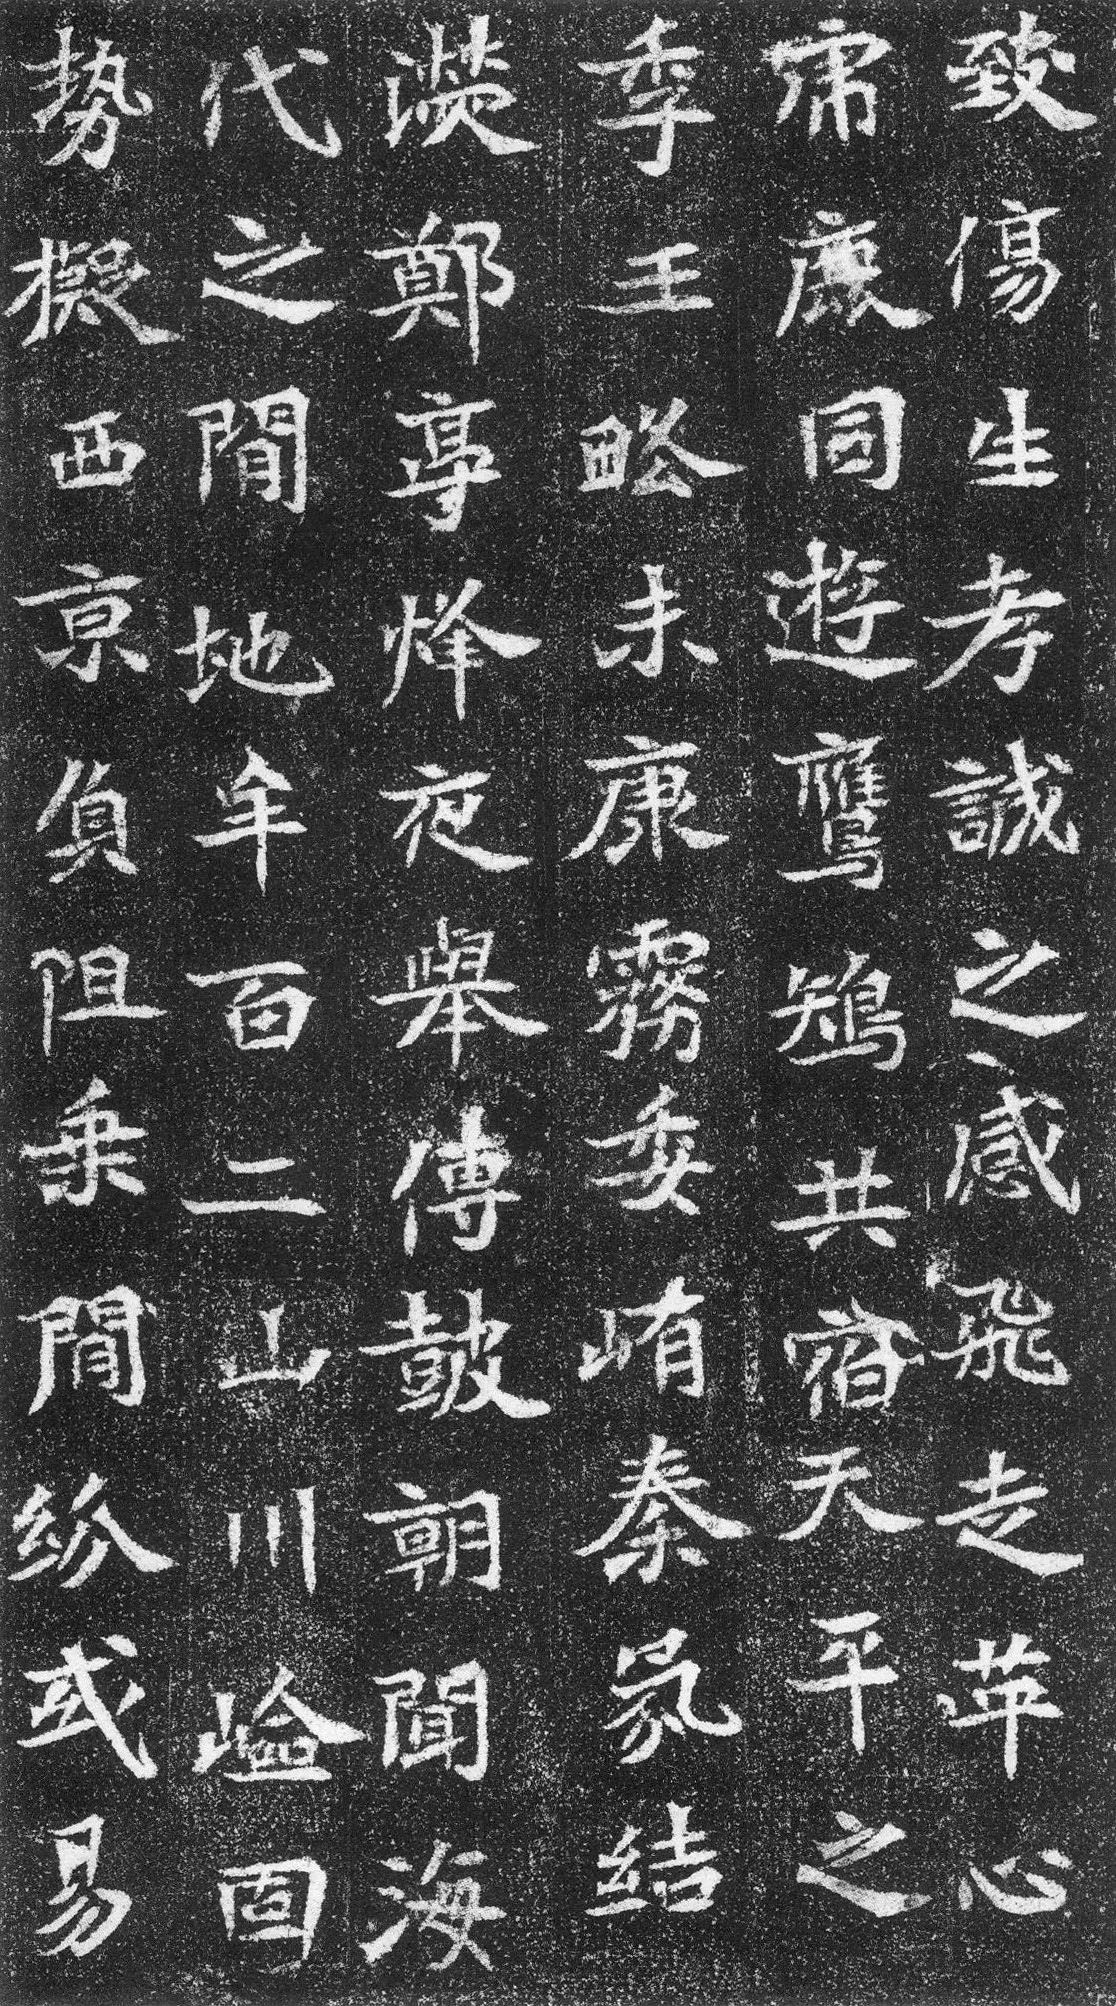 致傷生孝誠之感飛走革心
乕鹿同遊鷹鴙共宿天平之
季王略未康霧委崤秦氛結
滎鄭亭烽夜舉傳鼓朝聞海
代之間地牟百二山川嶮固
勢擬西京負阻乗間紛或易